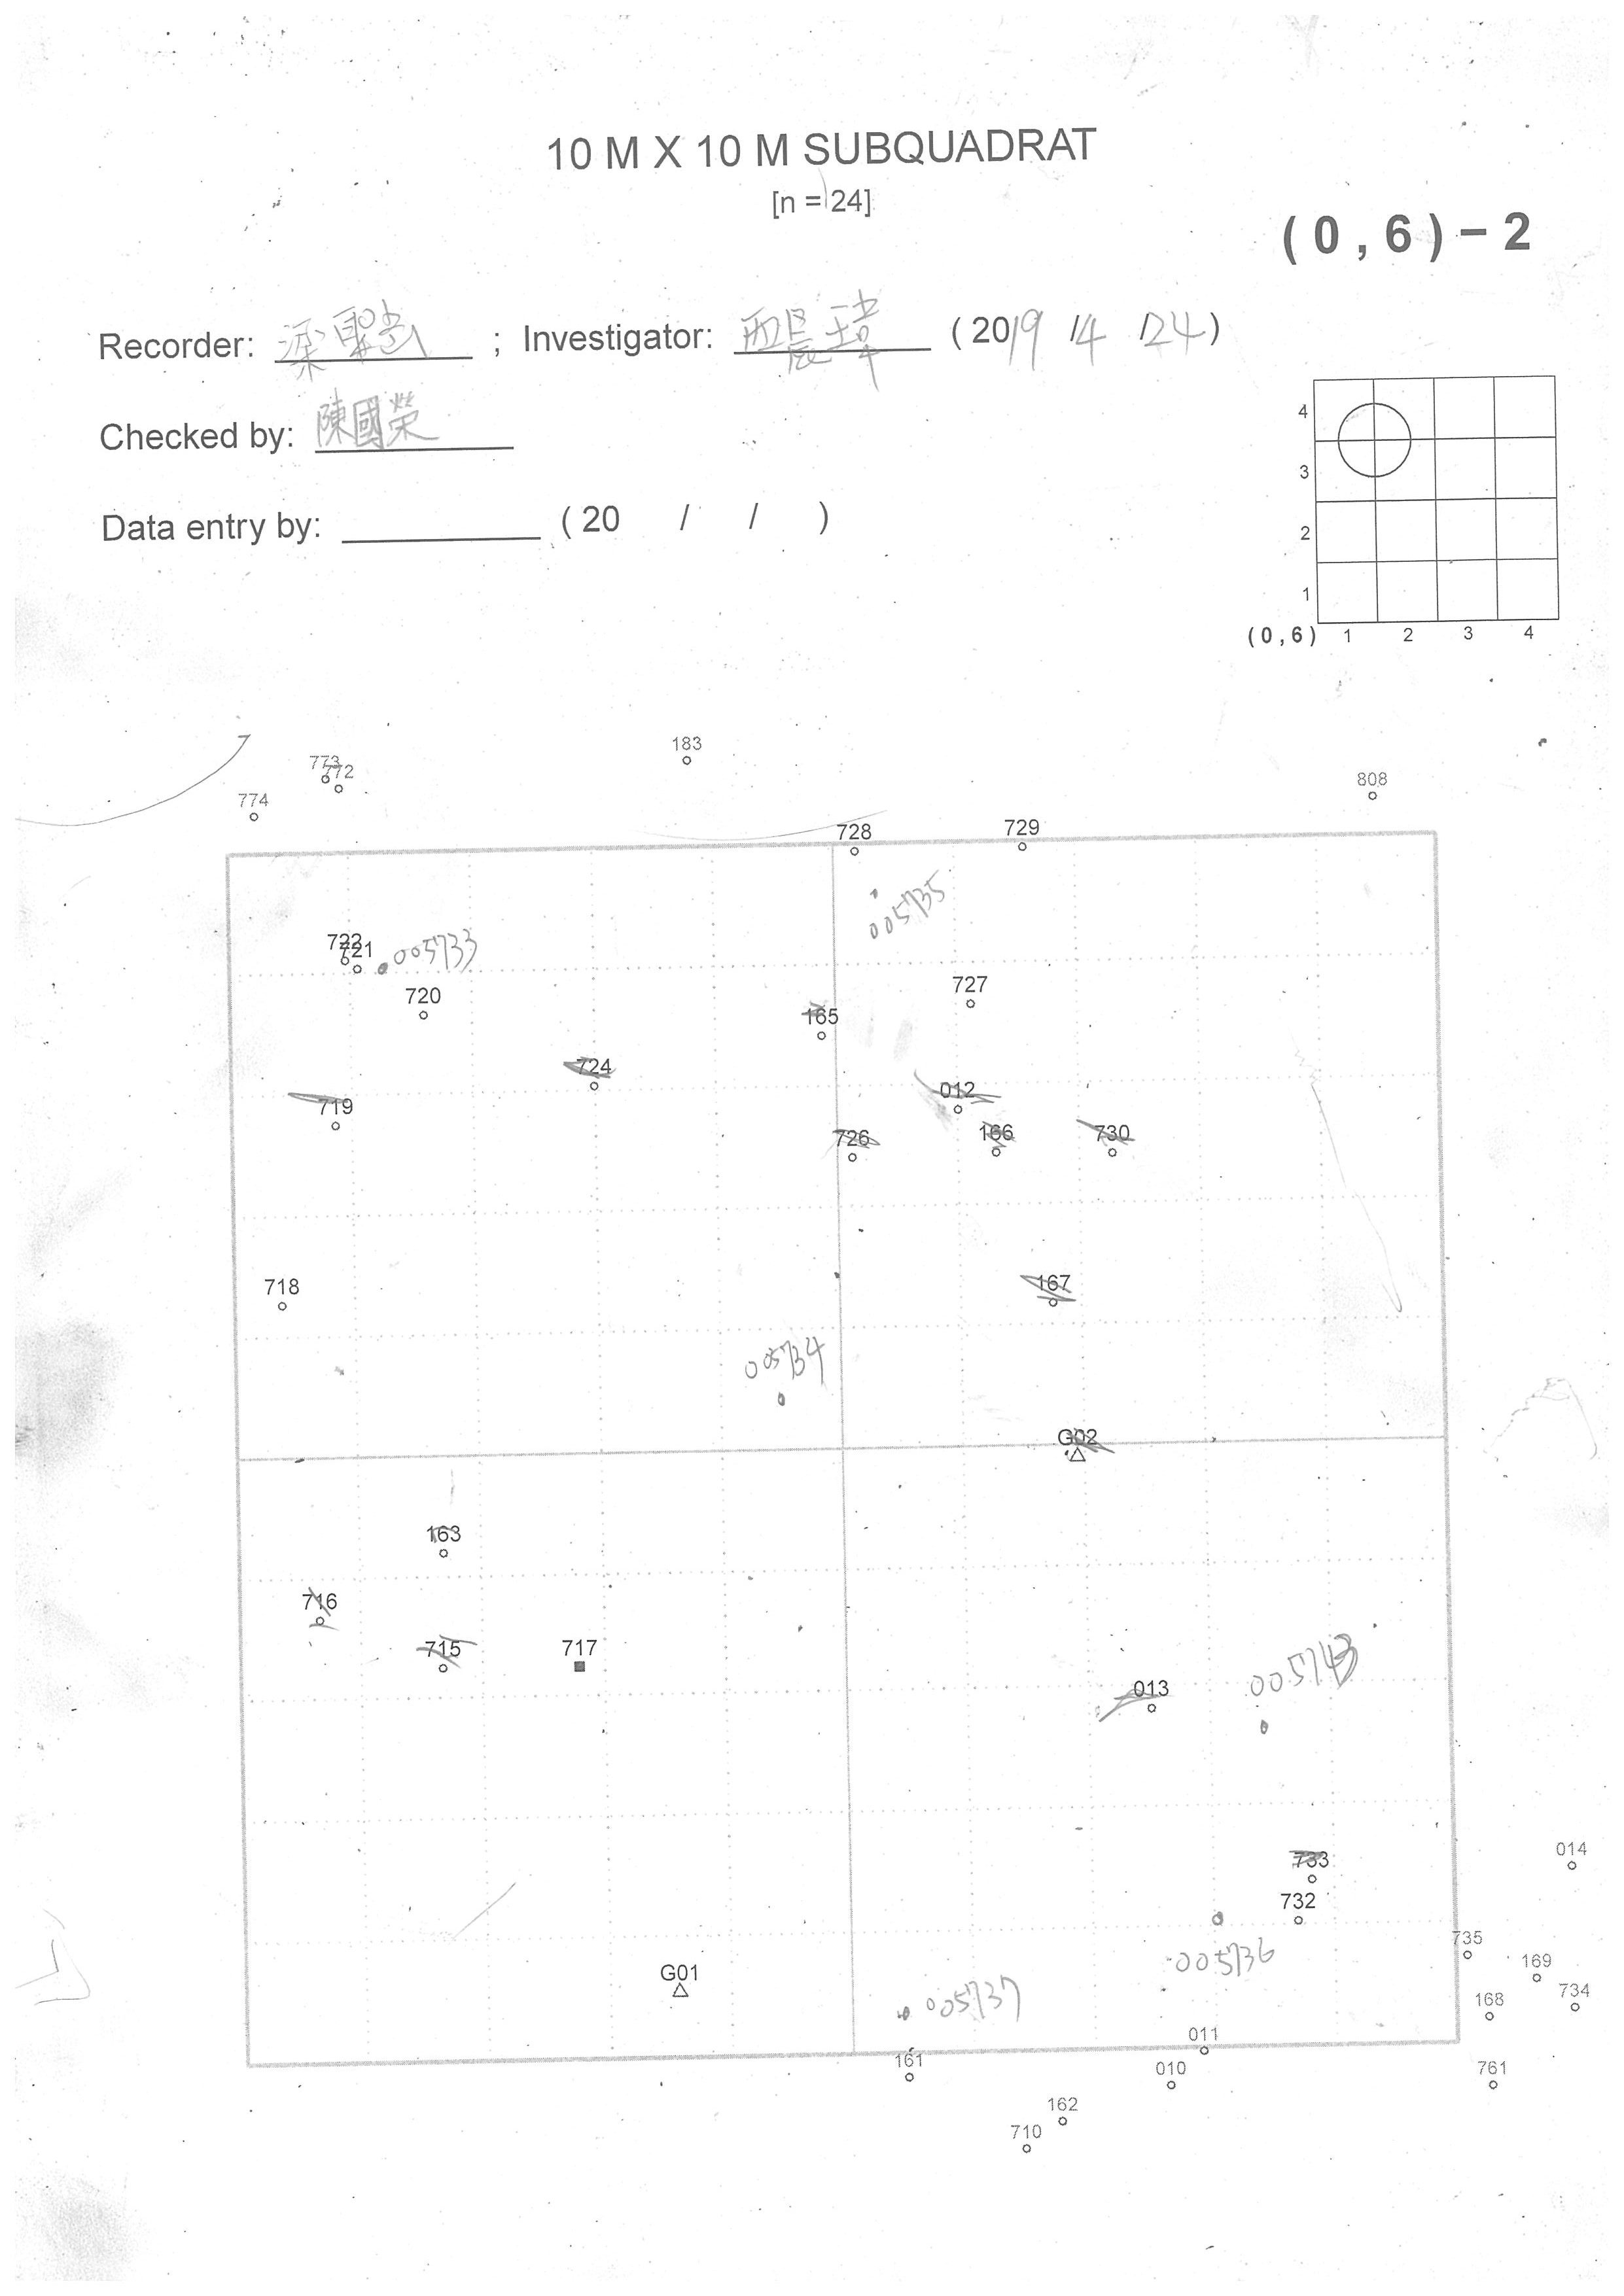 10 M X 10 M SUBQUADRAT
[n = 24]
( 0 , 6 ) − 2
Recorder: ; Investigator: ( 2019 /4 /24 )
Checked by: 陳國榮
Data entry by: ( 20 / / )
4
3
2
1
( 0 , 6 ) 1 2 3 4
183
773
772
808
774
728
729
005735
722
721
005733
727
720
165
724
012
719
726
166
730
718
167
005734
G02
163
716
715
717
013
005743
733
014
732
735
005736
G01
169
005737
168
734
011
161
010
761
162
710